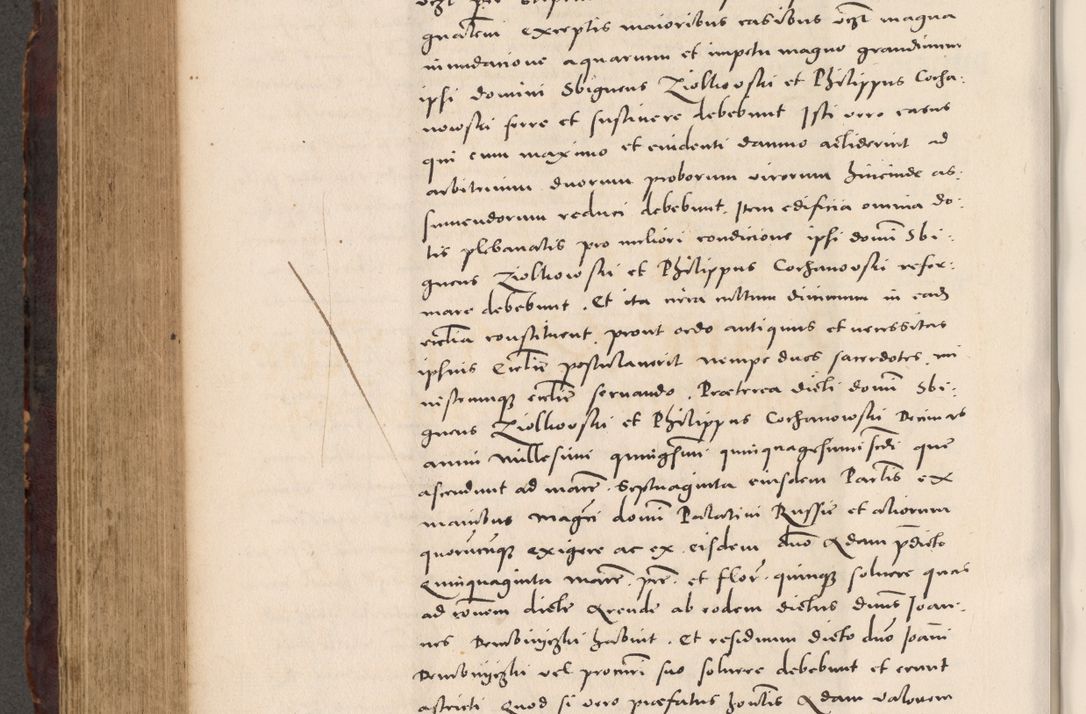 gnatem exceptis maioribus casibus vczt magna
inundatione aquarum et impetu magno grandinum
ipsi domini Sbigneus Ziolkowski et Philippus Cocha-
nowski ferre et sustinere debebunt Isti vero casus
qui cum maximo et euidenti damno acciderint ad
arbitrium duorum proborum virorum hincinde as-
sumendorum reduci debebunt. Item edificia omnia do-
tis plebanalis pro meliori condicione ipsi domi Sbi-
gneus Ziolkowski et Philippus Cochanowski refor-
mare debebunt. Et ita circa cultum diuinum in ead
ecclia constituent, prout ordo antiquus et necessitas
ipsius Ecclie postulauerit nempe duos sacerdotes, mi
nistrumqz ecclie seruando. Praeterea dicti domi Sbi-
gneus Ziolkowski et Philippus Cochanowski Decimas
anni Millesimi quingsimi quinquagesimi scdi que
ascendunt ad marc. Septuaginta eiusdem Partis ex
manibus Magci domi Palatini Russie et aliorum
quorucqz exigere ac ex eisdem dno Adam pdicto
Quinquaginta marc. pec. et flor. quinqz soluere quas
ad conem dicte Arende ab eodem dictus dnus Joan-
nes Dembinyczki habuit. Et residuum dicto dno Joanni
Dembinyczki vel procuri suo soluere debebunt et erunt
astricti Quod si vero praefatus hontis Adam valorem